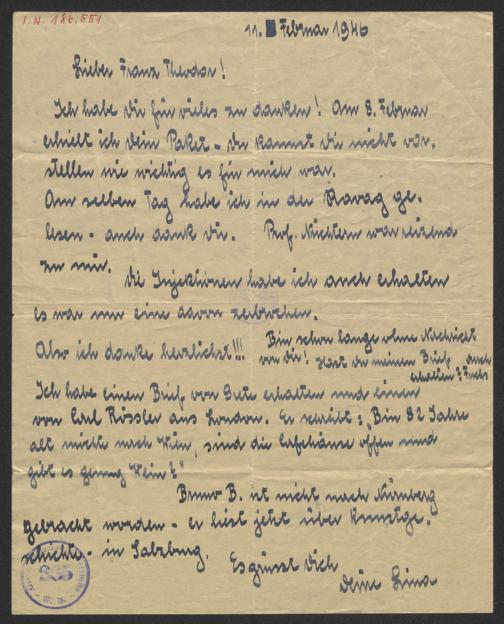 I.N. 186.551
11. Februar 1946
Lieber Franz Theodor!
Ich habe Dir für vieles zu danken! Am 8. Februar
erhielt ich Dein Paket - Du kannst Dir nicht vor-
stellen wie wichtig es für mich war.
Am selben Tag habe ich in der Ravag ge-
lesen - auch dank Dir. Prof. Nüchtern war reizend
zu mir.
Die Injektionen habe ich auch erhalten
es war nur eine davon zerbrochen.
Also ich danke herzlichst!!!
Bin schon lange ohne Nachricht
von Dir! Hast Du meinen Brief durch
erhalten?
Ich habe einen Brief von erhalten und einen
von Carl Rössler aus London. Er schreibt: „Bin 82 Jahre
alt möchte nach Wien, sind die Caféhäuser offen und
gibt es genug Wein?"
Bruno B. ist nicht nach Nürnberg
gebracht worden - er liest jetzt über Kunstge-
schichte - in Salzburg.
Es grüsst Dich
Deine Lina